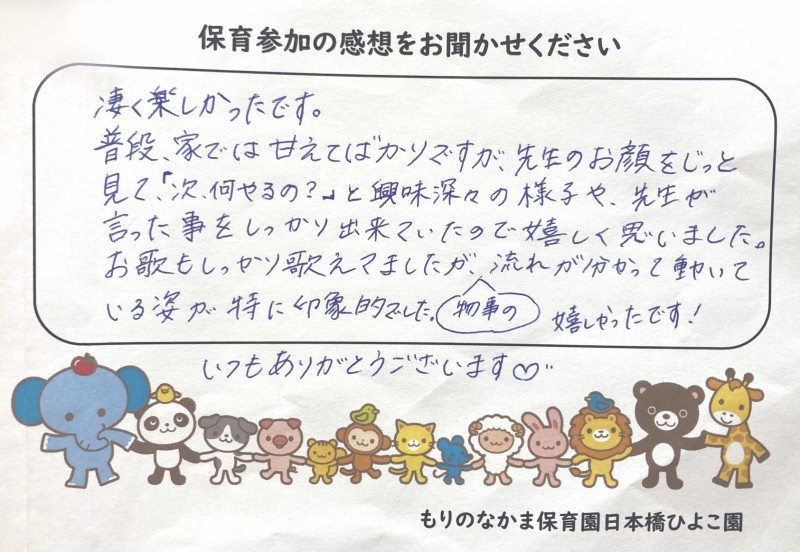 保育参加の感想をお聞かせください
凄く楽しかったです。
普段、家では甘えてばかりですが、先生のお顔をじっと
見て、「次、何やるの?」と興味深々の様子や、先生が
言った事をしっかり出来ていたので嬉しく思いました。
お歌もしっかり歌えてましたが、流れが分かって動いて
いる姿が特に印象的でした。物事の 嬉しかったです!
いつもありがとうございます♡
もりのなかま保育園日本橋ひよこ園